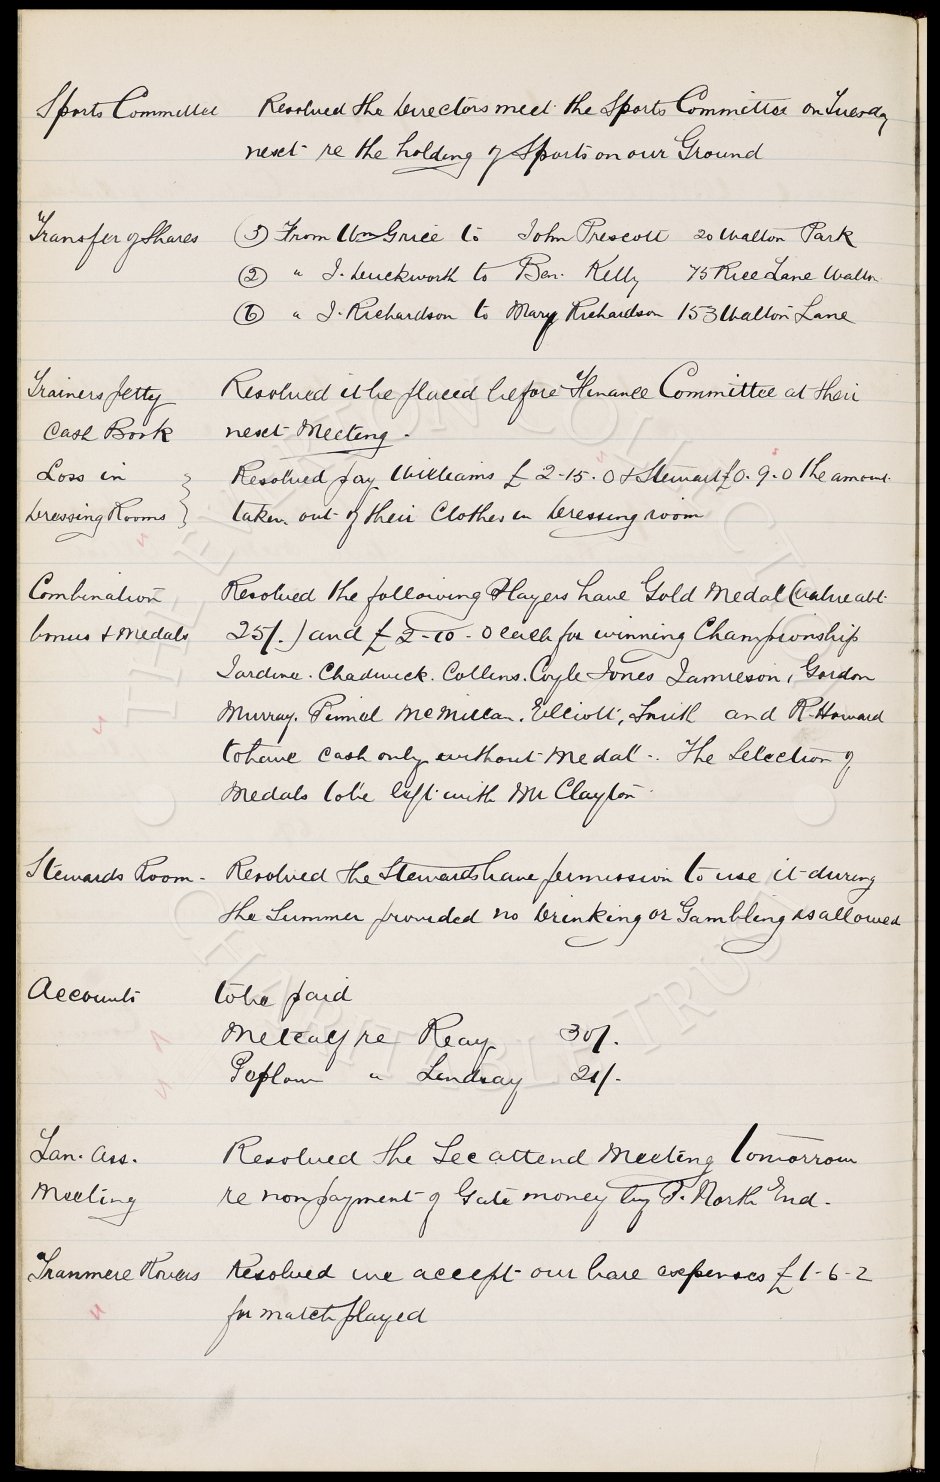 Sports Committee Resolved the Directors meet the Sports Committee on Tuesday
next re the holding of Sports on our Ground
Transfer of Shares (3) From Wm Grice to John Prescott 20 Walton Park
(2) " J. Duckworth to Ben. Kelly 75 Rice Lane Walton
(6) " J. Richardson to Mary Richardson 153 Walton Lane
Trainers Petty Resolved it be placed before Finance Committee at their
Cash Book next Meeting.
Loss in } Resolved pay Williams £2-15-0 & Stewart £0-9-0 the amount
Dressing Rooms } taken out of their Clothes in Dressing room
Combination Resolved the following Players have Gold Medal (value abt.
bonus & Medals 25/-) and £2-10-0 each for winning Championship
Jardine. Chadwick. Collins. Coyle Jones Jamieson, Gordon
Murray. Pinnel McMillan, Elliott, Smith and R. Howard
to have cash only without Medal. The Selection of
Medals to be left with Mr Clayton.
Stewards Room. Resolved the Stewards have permission to use it during
the Summer provided no Drinking or Gambling is allowed
Accounts to be paid
Metcalf re Reay 30/-
" Lindsay 21/-
Lan. Ass. Resolved the Sec attend Meeting tomorrow
Meeting re nonpayment of Gate money by P. North End.
Tranmere Rovers Resolved we accept our bare expenses £1-6-2
for match played
THE EVERTON COLLECTION
CHARITABLE TRUST